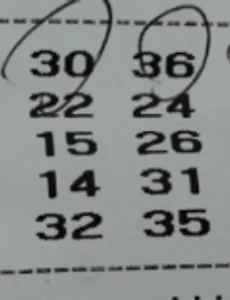 30 36
22 24
15 26
14 31
32 35